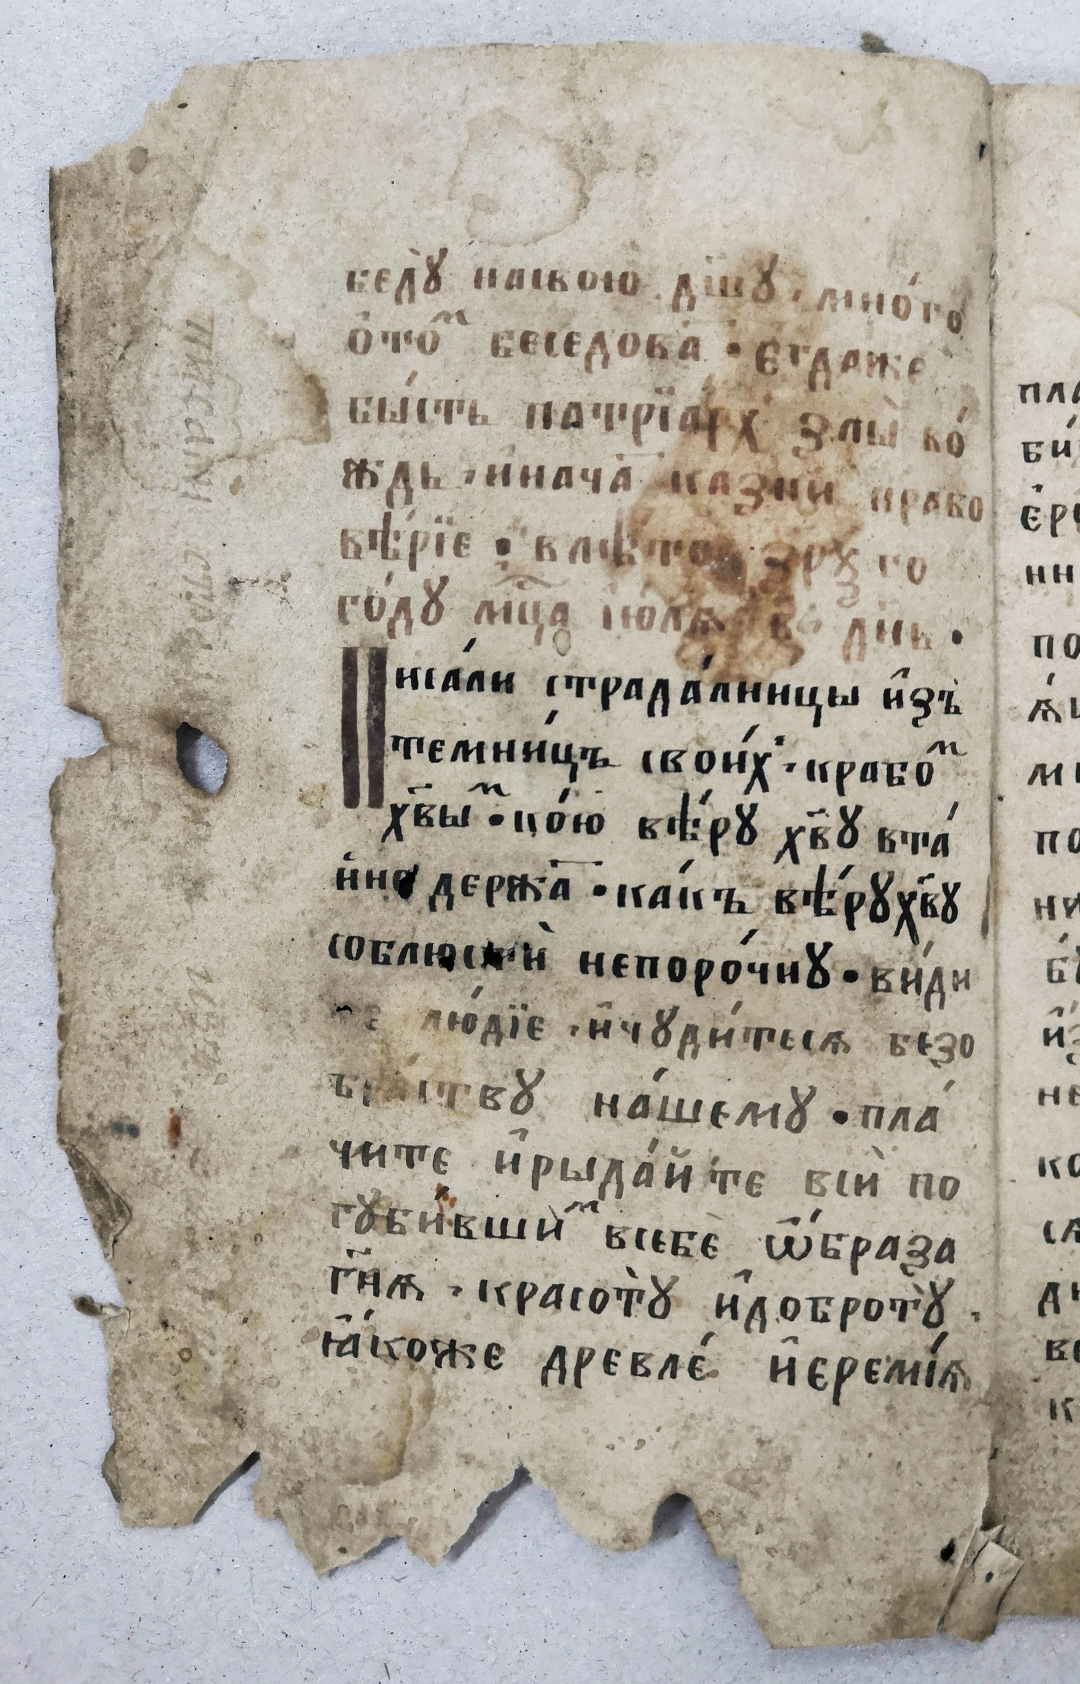 бедꙋ̀ насвою дш҃ꙋ, мно́го
о́то̑ бесѣдова̀ • є҆гдаже
бы́сть патрїа́рх злы̀ во́
ждь, и҆нача̀ казни право
вѣ́рїе • влѣто зрⷯѯ го
го́дꙋ мц҃а ію́лѧ днь •
Писа́ли страда́лницы и҆зъ
темни́цъ свои́х, крабо̑ⷨ
хв҃ы̑ⷨ • ко́ю вѣ́рꙋ хв҃ꙋ вта́
и҆но держа̀ • ка́къ вѣ́рꙋ хв҃ꙋ
соблюстѝ непоро́чнꙋ • ви́ди
лю́дїе, и҆чꙋди́тесѧ безо
бра́ствꙋ на́шемꙋ • пла́
чите и҆рыда́йте всѝ по
гꙋби́вши̑ⷨ всебѐ ѡ҆́браза
гн҃ѧ, красотꙋ̀ и҆добротꙋ̀.
ꙗ҆́коже древле́ и҆єремі́ѧ
пла
би́
є҆р
ни
по
ѧ҆
ми
по
ни
бꙋ́
и҆з
не
ко
сѧ
ди
ве
к